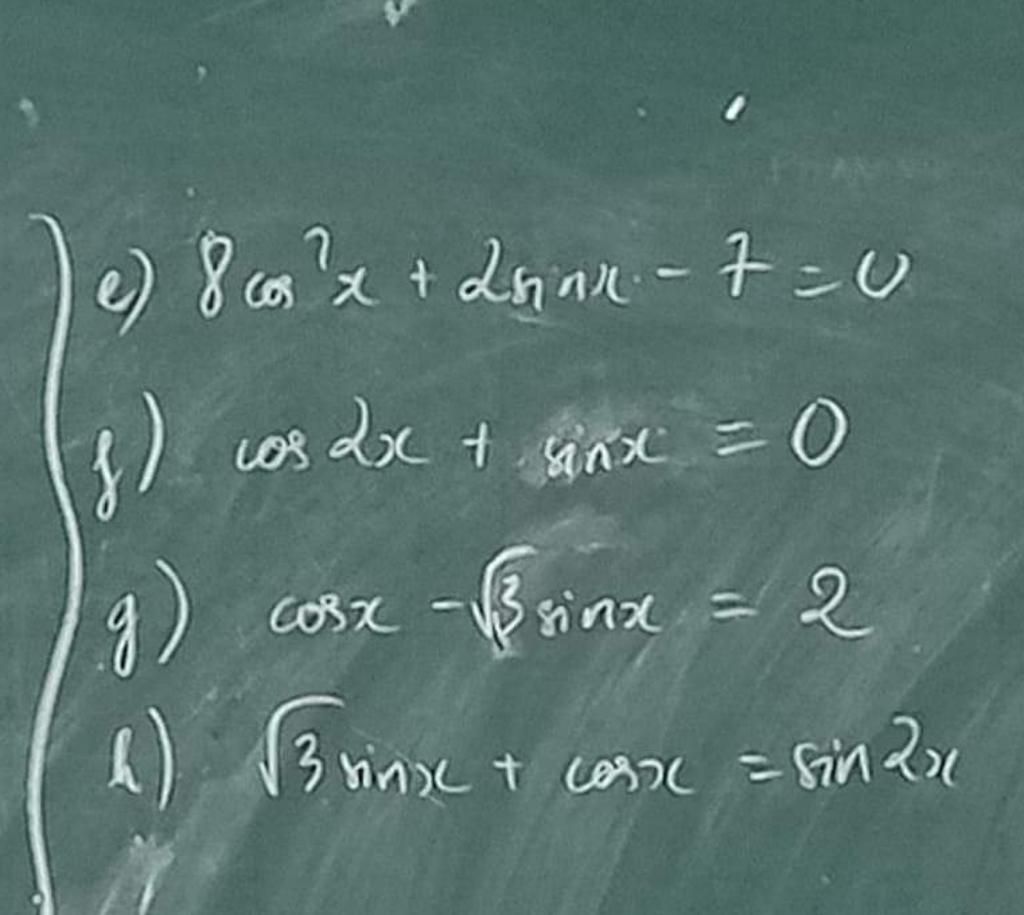 e) 8cos²x + 2sinx - 7 = 0
f) cos2x + sinx = 0
g) cosx - √3 sinx = 2
h) √3 sinx + cosx = sin2x